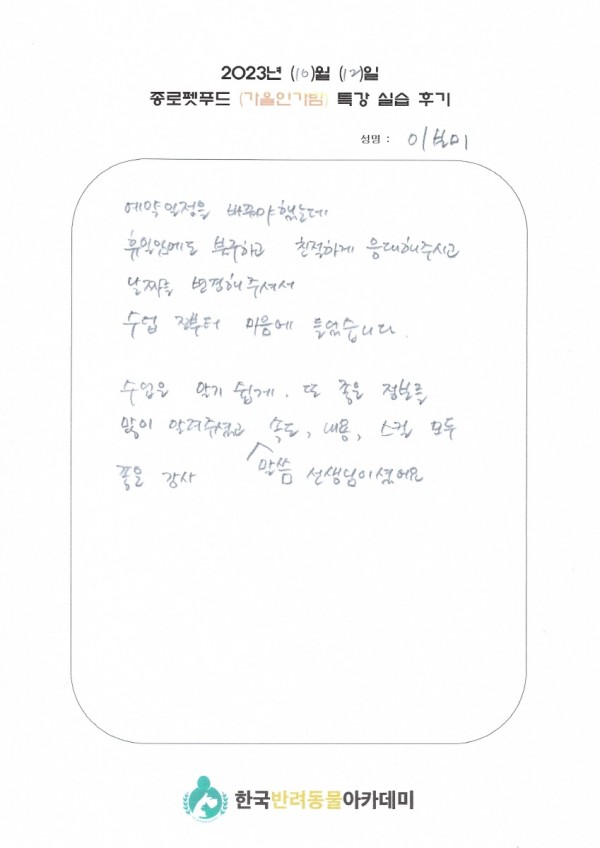 2023년 (10)월 (12)일
종로펫푸드 (가을인가범) 특강 실습 후기
성명 : 이보미
예약일정을 바꿔야 했는데
휴일임에도 불구하고 친절하게 응대해주시고
날짜를 변경해주셔서
수업 전부터 마음에 들었습니다.
수업은 알기 쉽게. 또 좋은 정보를
많이 알려주셨고 말씀 속도, 내용, 스킬 모두
좋은 강사 선생님이셨어요
한국반려동물아카데미